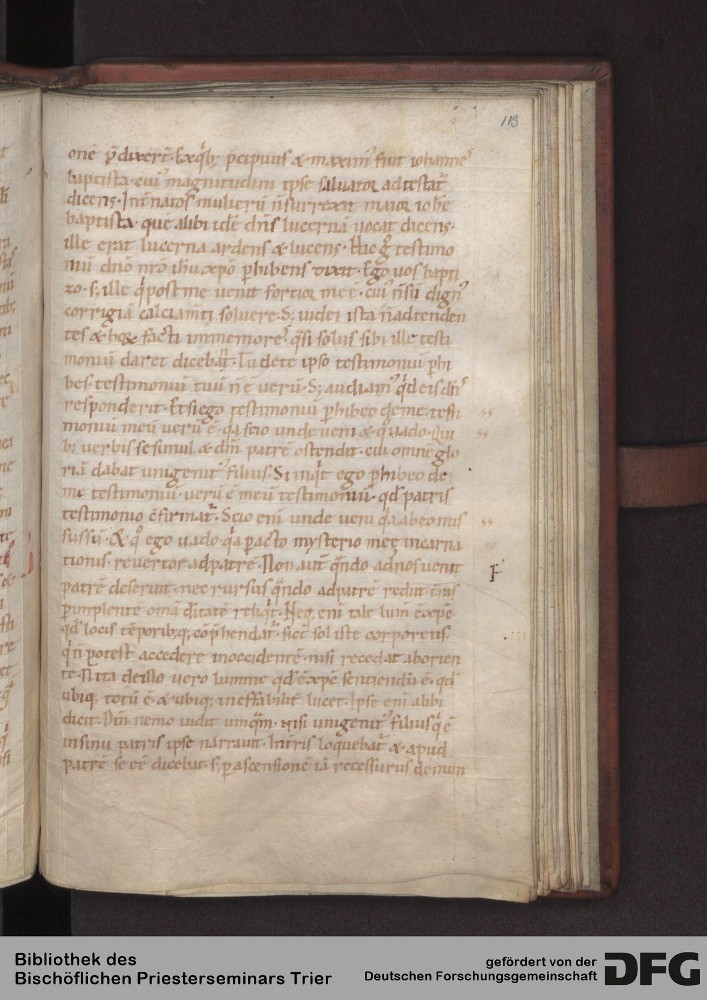 113
onē p̄dixert̄. Ex q̄b; p̄cipuus & maxim᾿ fuit iohanneſ
baptista. cui᾿ magnitudini ipse saluator adtestat᷑
dicens. Int̄ natos mulierū n̄ surrexit maior iohē
baptista. quē alibi idē dn̄s lucernā uocat dicens.
ille erat lucerna ardens & lucens. Hic g° testimo
niū dn̄o nr̄o ih̄u xp̄o phibens dixit. Ego uos bapti
zo. s; ille q̇ post me uenit fortior me ē. cui᾿ n̄ sū dign᾿
corrigiā calciam̄ti soluere. S; iudei ista n̄ adtenden
tes & hoꝝ facti immemoreſ. q̄si solus sibi ille testi
moniū daret dicebāt. Tu de te ipso testimoniū phi
bes. testimoniū tuū n̄ ē uerū. S; audiam᾿ q̇d eis dn̄ſ
responderit. Et si ego testimoniū phibeo de me. testi
moniū meū uerū ē. q̇a scio unde ueni & q°uado. Qui
b; uerbis se simul & dm̄ patrē ostendit. cui omnē glo
riā dabat unigenit᾿ filius. Si inq̇t ego phibeo de
me testimoniū. uerū ē meū testimoniū. qd̄ patris
testimonio c̄firmat᷑. Scio eni unde ueni q̇a ab eo mis
sus sū. & q° ego uado q̇a pacto mysterio meę incarna
tionis. reuertor ad patrē. Non aut̄ q̄ndo ad nos uenit
patrē deseruit. nec rursus q̄ndo ad patrē redit t̄ris
p implentē om̄a diītatē reliq̇t. Neq; eni tale lum̄ ē xp̄c
qd̄ locis tēporib;q; cōp̄hendat᷑. sic̄ sol iste corporeus.
q̇ n̄ potest accedere in occidentē. nisi recedat ab orien
te. N̄ ita de illo uero lumine qd̄ ē xp̄c sentiendū ē. qd̄
ubiq; totū ē. & ubiq; ineffabilit̄ lucet. Ipse eni alibi
dicit. Dm̄ nemo uidit unq̄m. nisi unigenit᾿ filius q̇ ē
in sinu patris ipse narrauit. In t̄ris loquebat᷑ & apud
patrē se eē dicebat. s; p ascensionē iā recessurus de mun
Bibliothek des
Bischöflichen Priesterseminars Trier
gefördert von der
Deutschen Forschungsgemeinschaft
DFG